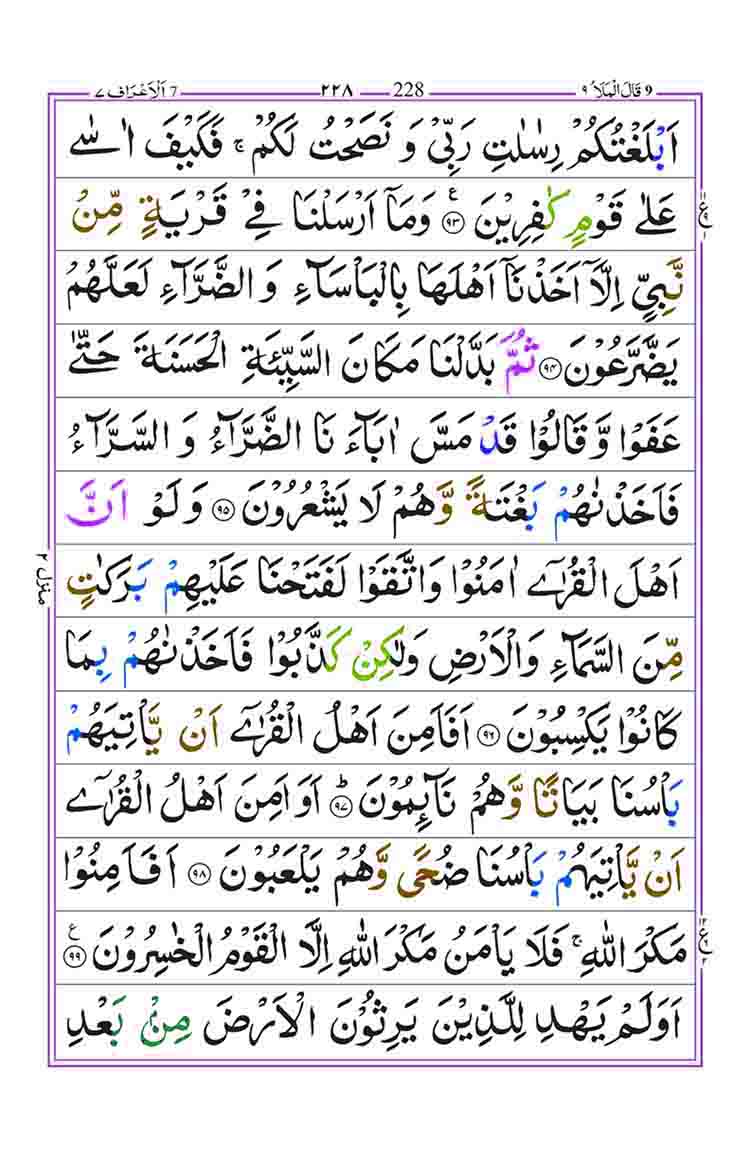 9 قَالَ الۡمَلَاُ ٩ 228 ٢٢٨ 7 اَلۡاَعۡرَاف ٧
اَبۡلَغۡتُكُمۡ رِسٰلٰتِ رَبِّىۡ وَ نَصَحۡتُ لَـكُمۡ‌ۚ فَكَيۡفَ اٰسٰى
عَلٰى قَوۡمٍ كٰفِرِيۡنَ ﴿۹۳﴾ ع وَمَاۤ اَرۡسَلۡنَا فِىۡ قَرۡيَةٍ مِّنۡ
نَّبِىٍّ اِلَّاۤ اَخَذۡنَاۤ اَهۡلَهَا بِالۡبَاۡسَآءِ وَالضَّرَّآءِ لَعَلَّهُمۡ
يَضَّرَّعُوۡنَ ﴿۹۴﴾ ثُمَّ بَدَّلۡنَا مَكَانَ السَّيِّئَةِ الۡحَسَنَةَ حَتّٰى
عَفَوْا وَّقَالُوۡا قَدۡ مَسَّ اٰبَآءَ نَا الضَّرَّآءُ وَ السَّرَّآءُ
فَاَخَذۡنٰهُمۡ بَغۡتَةً وَّهُمۡ لَا يَشۡعُرُوۡنَ ﴿۹۵﴾ وَلَوۡ اَنَّ
اَهۡلَ الۡقُرٰٓى اٰمَنُوۡا وَاتَّقَوۡا لَفَتَحۡنَا عَلَيۡهِمۡ بَرَكٰتٍ
مِّنَ السَّمَآءِ وَالۡاَرۡضِ وَلٰـكِنۡ كَذَّبُوۡا فَاَخَذۡنٰهُمۡ بِمَا
كَانُوۡا يَكۡسِبُوۡنَ ﴿۹۶﴾ اَفَاَمِنَ اَهۡلُ الۡقُرٰٓى اَنۡ يَّاۡتِيَهُمۡ
بَاۡسُنَا بَيَاتًا وَّهُمۡ نَآئِمُوۡنَؕ ﴿۹۷﴾ اَوَاَمِنَ اَهۡلُ الۡقُرٰٓى
اَنۡ يَّاۡتِيَهُمۡ بَاۡسُنَا ضُحًى وَّهُمۡ يَلۡعَبُوۡنَ ﴿۹۸﴾ اَفَاَمِنُوۡا
مَكۡرَ اللّٰهِ‌ۚ فَلَا يَاۡمَنُ مَكۡرَ اللّٰهِ اِلَّا الۡقَوۡمُ الۡخٰسِرُوۡنَ ﴿۹۹﴾ ع
اَوَلَمۡ يَهۡدِ لِلَّذِيۡنَ يَرِثُوۡنَ الۡاَرۡضَ مِنۡۢ بَعۡدِ
منزل ۲